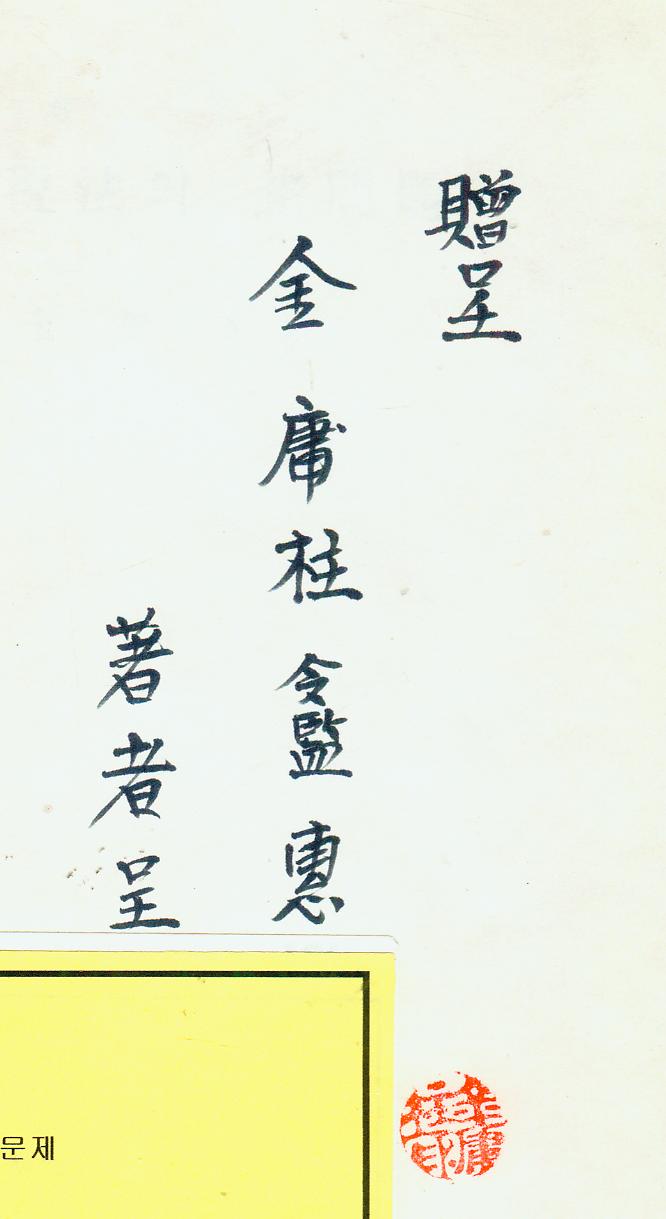 贈呈
金庸柱 令監 惠
著者呈
문제